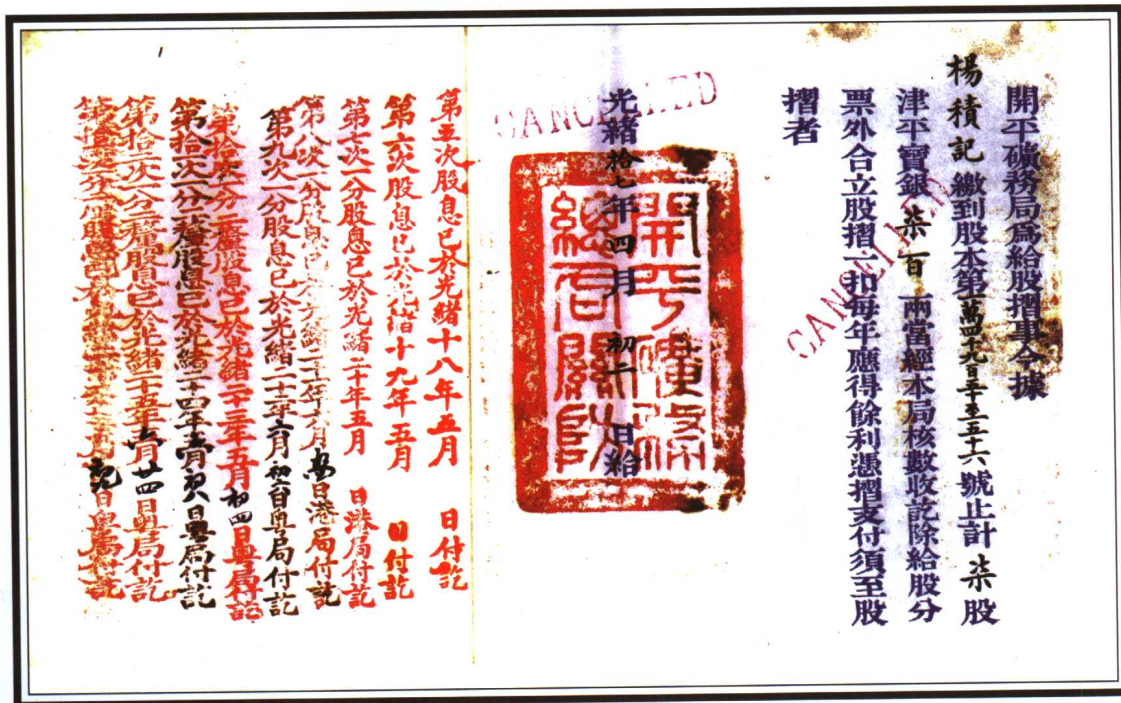 開平礦務局爲給股摺事今據
楊積記繳到股本第一萬四千九百五十至五十六號止計柒股
津平寶銀柒百兩當經本局核數收訖除給股分
票外合立股摺一扣每年應得餘利憑摺支付須至股
摺者
CANCELLED
CANCELLED
光緒拾七年四月初二日給
開平礦務總局關防
第五次股息已於光緒十八年五月 日付訖
第六次股息已於光緒十九年五月 日付訖
第七次一分股息已於光緒二十年五月 日港局付訖
第八次一分股息已於光緒二十一年六月 日港局付訖
第九次一分股息已於光緒二十二年六月初一日粵局付訖
第拾次一分二釐股息已於光緒二十三年五月初四日粵局付訖
第拾一次一分二釐股息已於光緒二十四年 月初八日粵局付訖
第拾二次一分二釐股息已於光緒二十五年六月廿四日粵局付訖
第拾三次一分 股 日粵局付訖